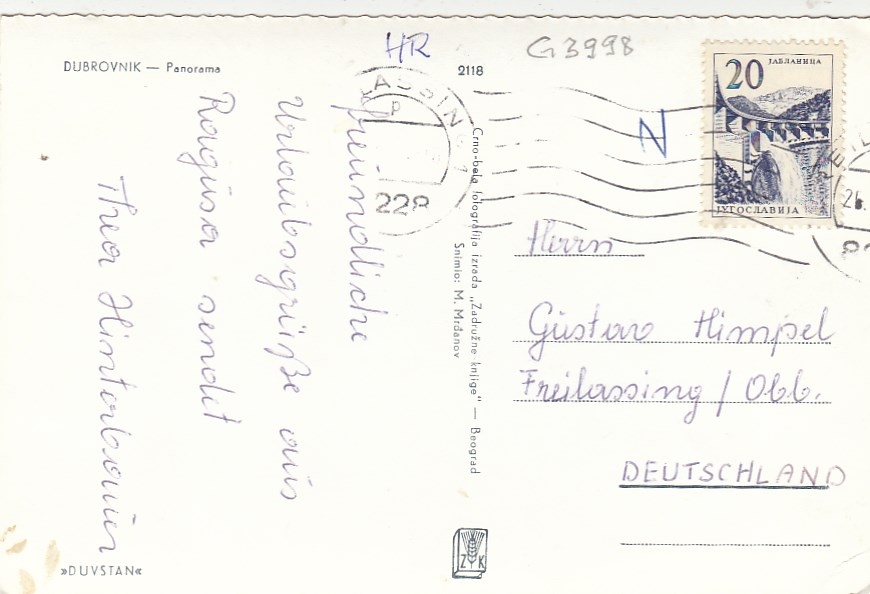 DUBROVNIK — Panorama
HR
2118
G3998
N
20
ЈАБЛАНИЦА
ЈУГОСЛАВИЈА
228
26.
freundliche
Urlaubsgrüße aus
Ragusa sendet
Thea Hinterbauer
Crno-bela fotografija izrada „Zadružne knjige“ — Beograd
Snimio: M. Mrđanov
Herrn
Gustav Himpsel
Freilassing / Obb.
DEUTSCHLAND
»DUVSTAN«
Z K